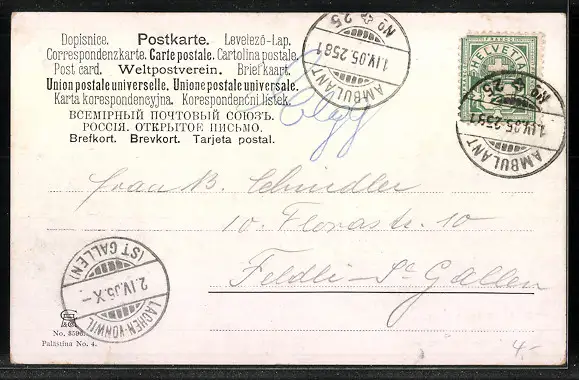 Dopisnice. Postkarte. Levelező-Lap.
Correspondenzkarte. Carte postale. Cartolina postale.
Post card. Weltpostverein. Briefkaart.
Union postale universelle. Unione postale universale.
Karta korespondencyjna. Korespondenční listek.
ВСЕМІРНЫЙ ПОЧТОВЫЙ СОЮЗЪ.
РОССІЯ. ОТКРЫТОЕ ПИСЬМО.
Brefkort. Brevkort. Tarjeta postal.
AMBULANT
1.IV.05.2581
No 25
FRANCO
HELVETIA
AMBULANT
1.IV.05.2581
No 25
Frau B. Schindler
10. Florastr. 10
Feldli-St Gallen
(ST GALLEN)
2.IV.05.X-
LACHEN-VONWIL
No. 8596
Palästina No. 4.
4.-